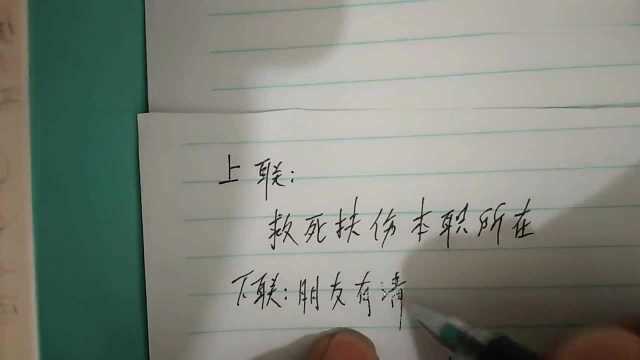 上联:
救死扶伤本职所在
下联:朋友有清